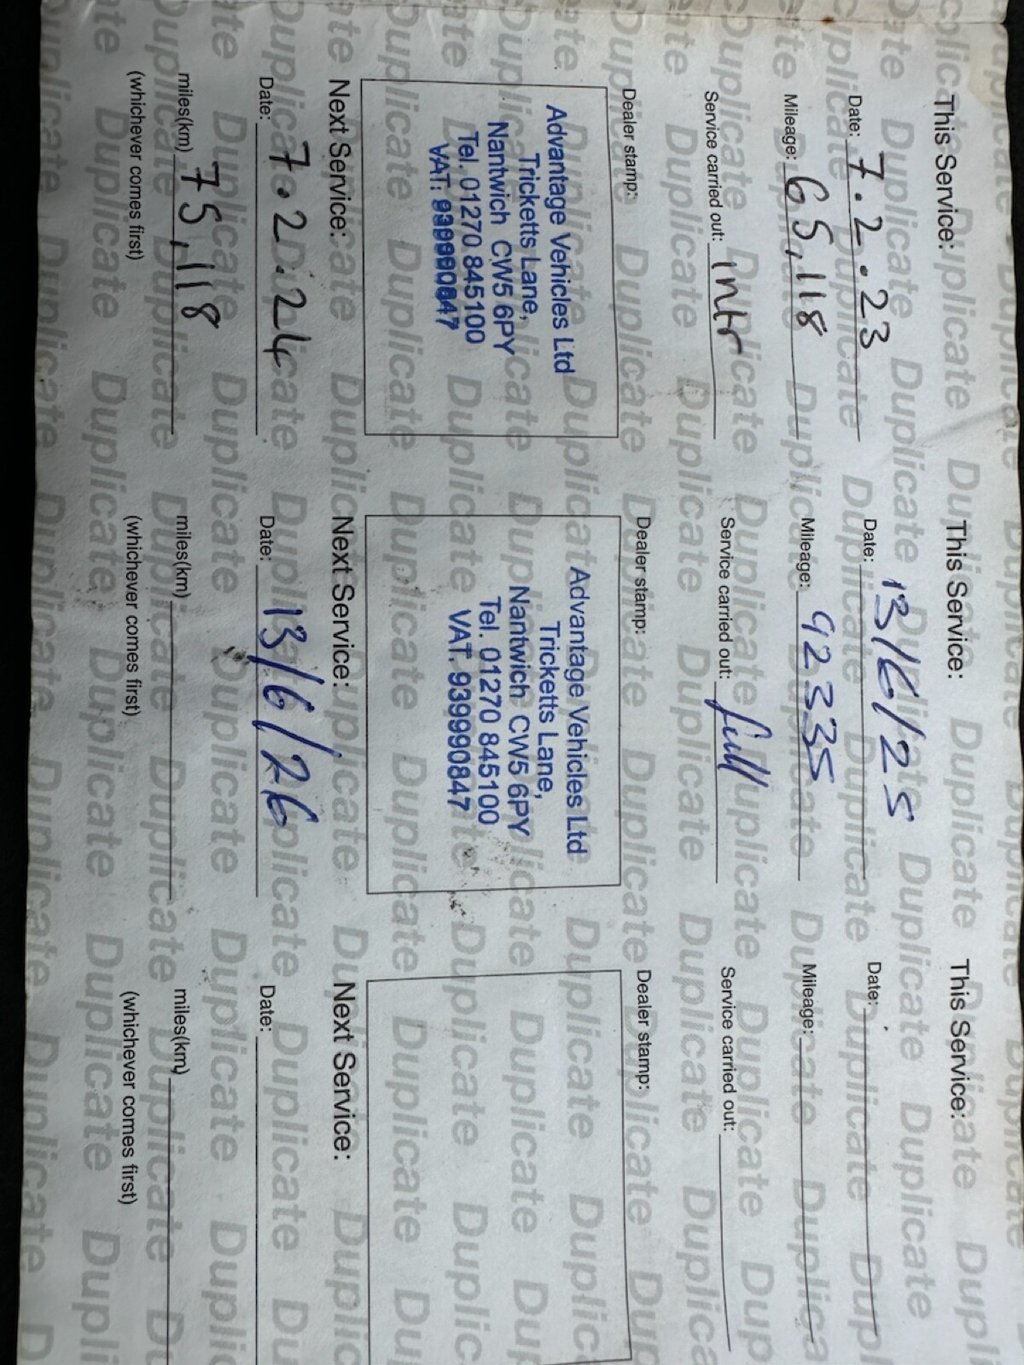 This Service:
Date: 7.2.23
Mileage: 65,118
Service carried out: intr
Dealer stamp:
Advantage Vehicles Ltd
Tricketts Lane,
Nantwich CW5 6PY
Tel. 01270 845100
VAT. 939990847
Next Service:
Date: 7.2.24
miles(km) 75,118
(whichever comes first)
This Service:
Date: 13/6/25
Mileage: 92335
Service carried out: full
Dealer stamp:
Advantage Vehicles Ltd
Tricketts Lane,
Nantwich CW5 6PY
Tel. 01270 845100
VAT. 939990847
Next Service:
Date: 13/6/26
miles(km)
(whichever comes first)
This Service:
Date:
Mileage:
Service carried out:
Dealer stamp:
Next Service:
Date:
miles(km)
(whichever comes first)
Duplicate Duplicate Duplicate Duplicate Duplicate